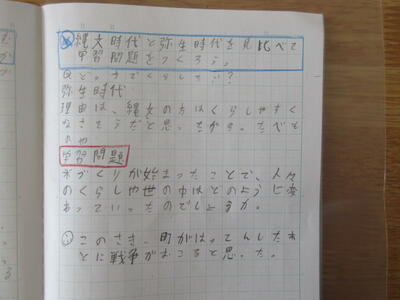 縄文時代と弥生時代を見比べて
学習問題をつくろう。
Q どっちでくらしたい?
弥生時代
理由は、縄文の方はくらしやすく
なさそうだと思ったから。たべも
のや
学習問題
米づくりが始まったことで、人々
のくらしや世の中はどのように変
わっていったのでしょうか。
このさき、町がはってんしたあ
とに戦争がおこると思った。